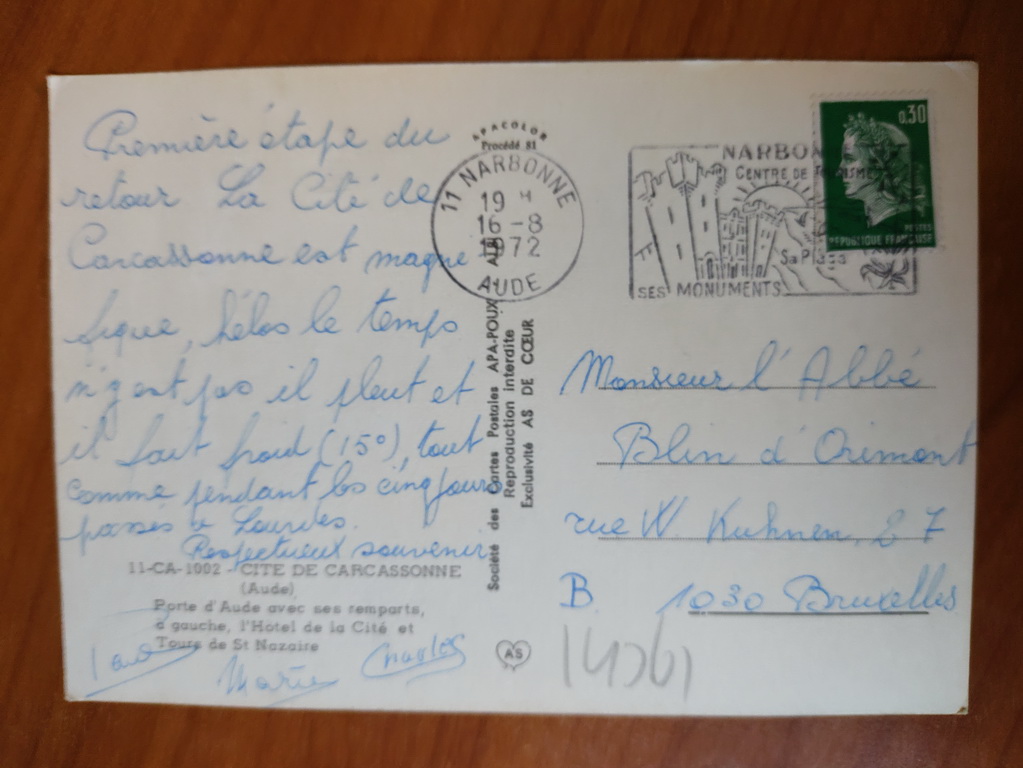 Première étape du
retour La Cité de
Carcassonne est magni
fique, hélas le temps
n'y est pas il pleut et
il fait froid (15°), tout
comme pendant les cinq jours
passés à Lourdes.
Respectueux souvenir
11-CA-1002 - CITE DE CARCASSONNE
(Aude)
Porte d'Aude avec ses remparts,
à gauche, l'Hotel de la Cité et
Tours de St Nazaire
Marie Charles
APACOLOR
Procédé 81
11 NARBONNE
19 H
16-8
1972
AUDE
Société des Cartes Postales APA-POUX - ALBI
Reproduction interdite
Exclusivité AS DE CŒUR
AS
NARBON
CENTRE DE TOURISME
SES MONUMENTS
0,30
POSTES
REPUBLIQUE FRANÇAISE
Monsieur l'Abbé
Blin d'Orimont
rue W. Kuhnen, 27
B. 1030 Bruxelles